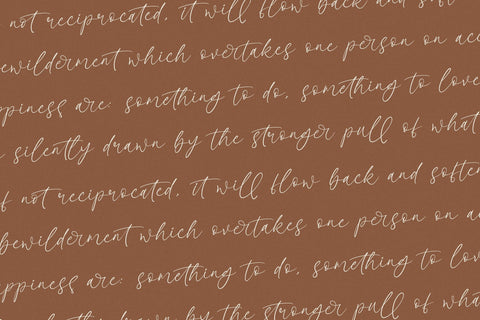 not reciprocated, it will flow back and soft
bewilderment which overtakes one person on acc
ppiness are: something to do, something to love
silently drawn by the stronger pull of what
if not reciprocated, it will flow back and soften
bewilderment which overtakes one person on ac
ppiness are: something to do, something to lov
silently drawn by the stronger pull of what